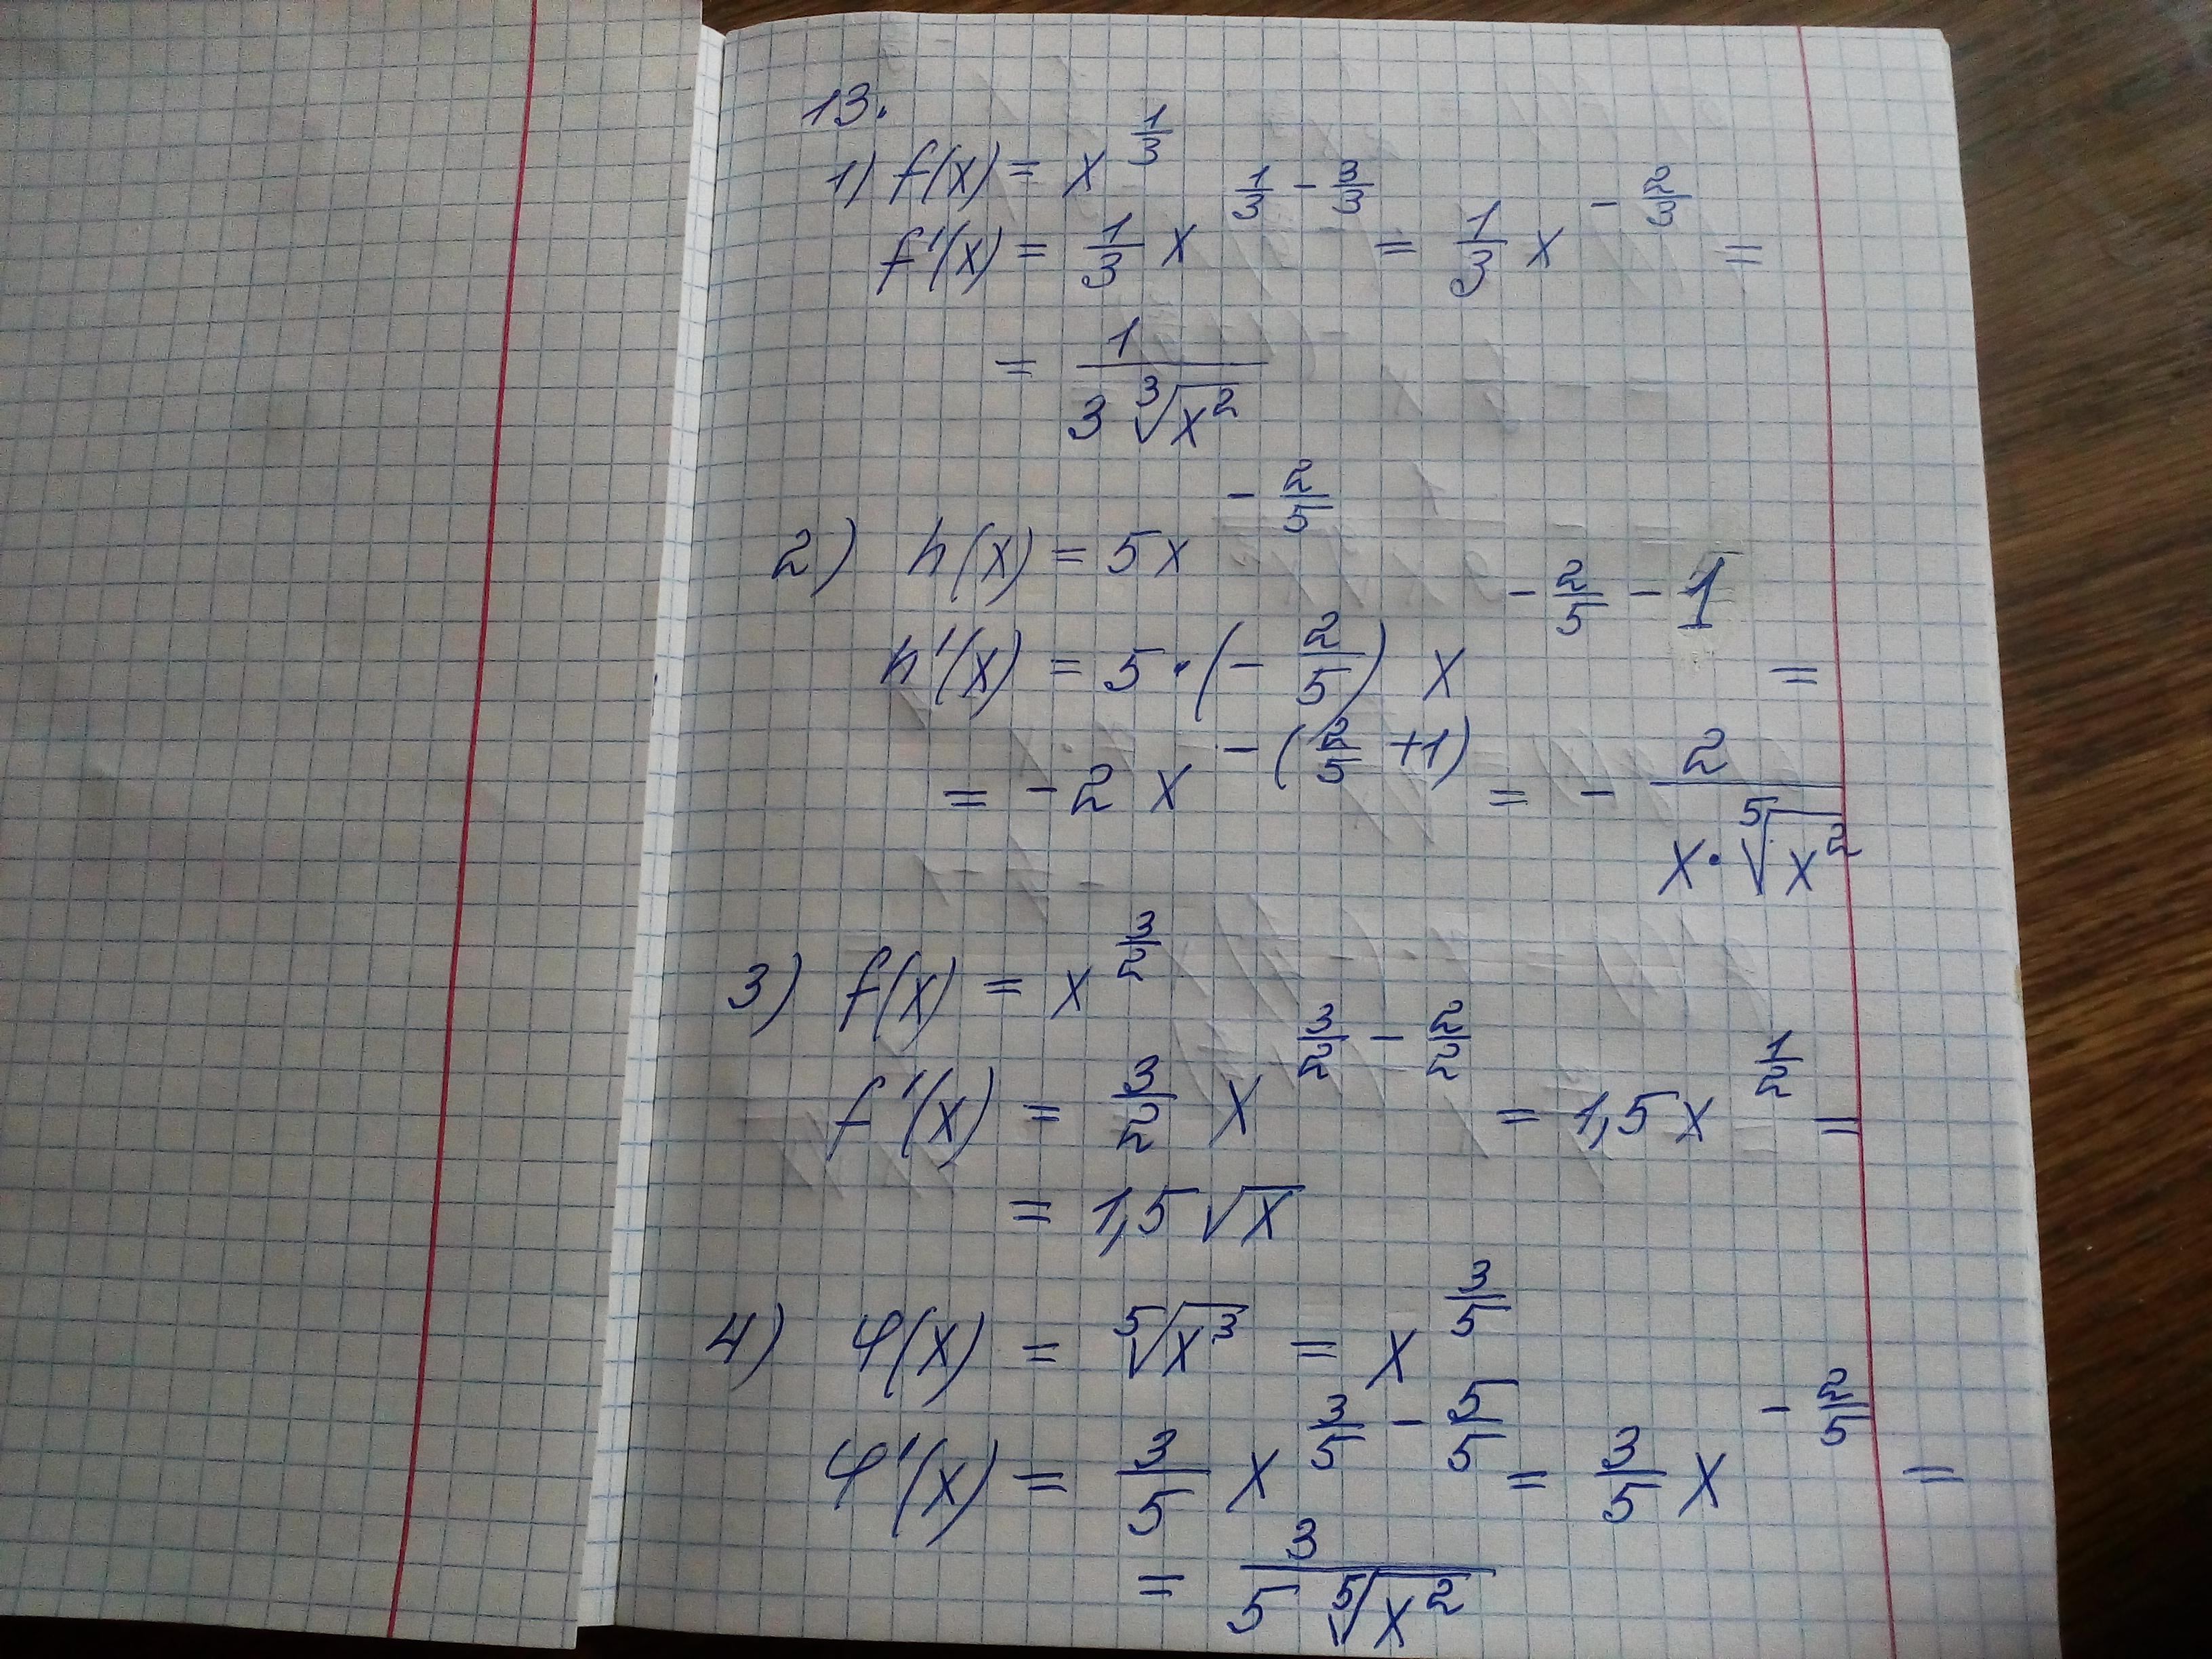 13.
1) f(x) = x^{\frac{1}{3}}
f'(x) = \frac{1}{3} x^{\frac{1}{3} - \frac{3}{3}} = \frac{1}{3} x^{-\frac{2}{3}} =
= \frac{1}{3 \sqrt[3]{x^2}}
2) h(x) = 5x^{-\frac{2}{5}}
h'(x) = 5 \cdot (-\frac{2}{5}) x^{-\frac{2}{5} - 1} =
= -2 x^{-(\frac{2}{5} + 1)} = -\frac{2}{x \cdot \sqrt[5]{x^2}}
3) f(x) = x^{\frac{3}{2}}
f'(x) = \frac{3}{2} x^{\frac{3}{2} - \frac{2}{2}} = 1,5x^{\frac{1}{2}} =
= 1,5 \sqrt{x}
4) φ(x) = \sqrt[5]{x^3} = x^{\frac{3}{5}}
φ'(x) = \frac{3}{5} x^{\frac{3}{5} - \frac{5}{5}} = \frac{3}{5} x^{-\frac{2}{5}} =
= \frac{3}{5 \sqrt[5]{x^2}}